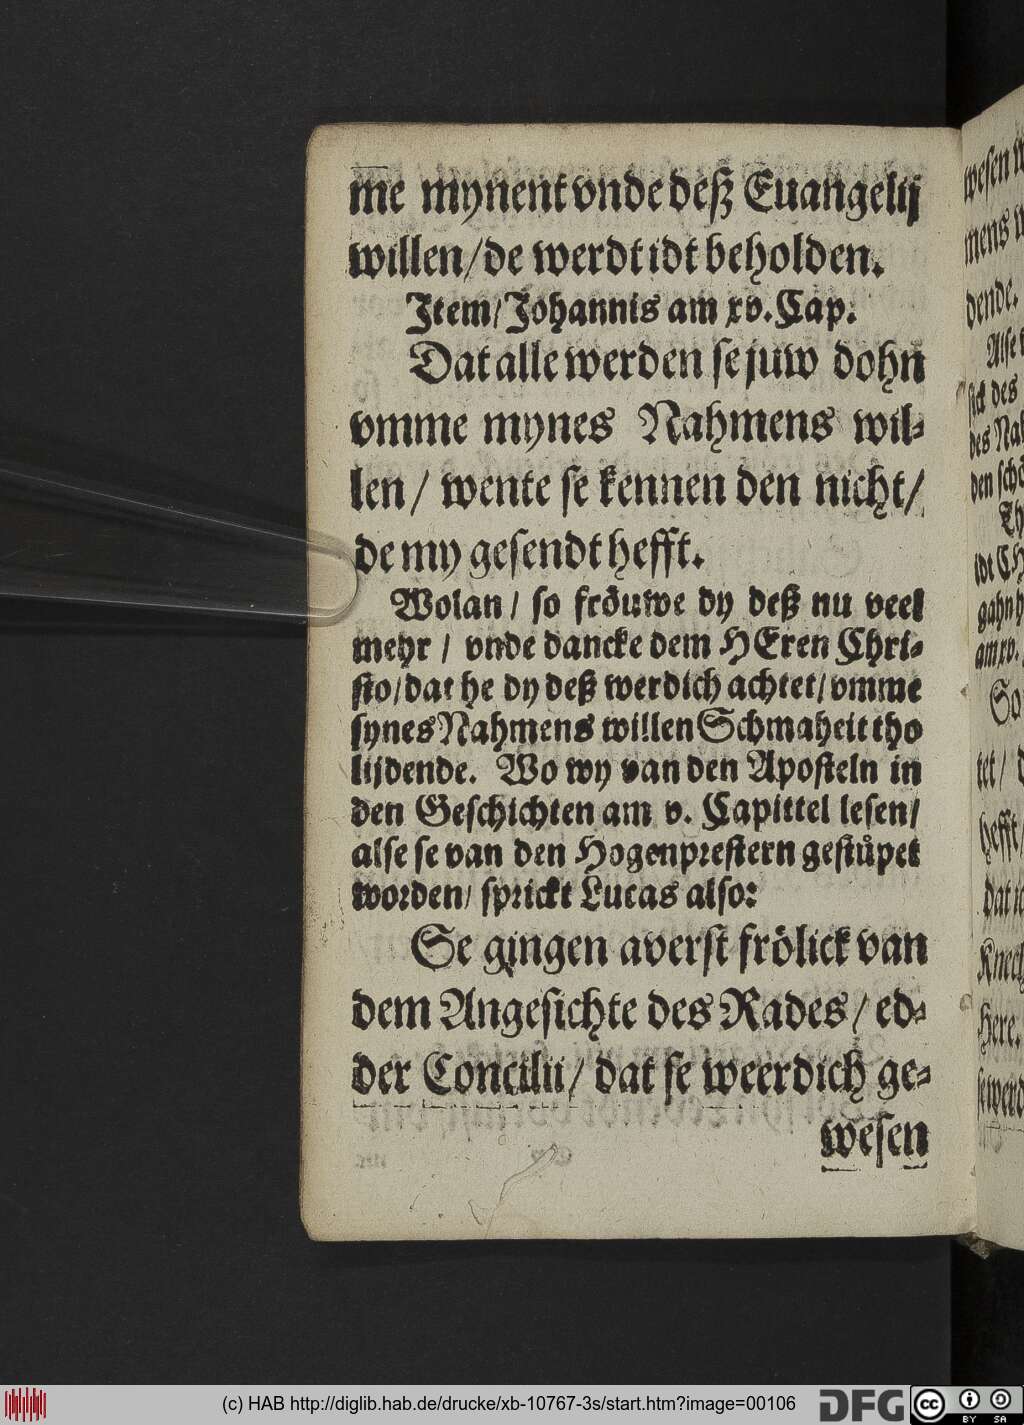 me mynent vnde deß Euangelij
willen/de werdt idt beholden.
Item/Johannis am xv. Cap.
Dat alle werden se juw dohn
vmme mynes Nahmens wil-
len/ wente se kennen den nicht/
de my gesendt hefft.
Wolan/ so fröuwe dy deß nu veel
mehr/ vnde dancke dem HEren Chri-
sto/dat he dy deß werdich achtet/vmme
synes Nahmens willen Schmaheit tho
lijdende. Wo wy van den Aposteln in
den Geschichten am v. Capittel lesen/
alse se van den Hogenprestern gestůpet
worden/ sprickt Lucas also:
Se gingen averst frölick van
dem Angesichte des Rades/ ed-
der Concilii/ dat se weerdich ge-
wesen
wesen
mens
dende.
Alse
sick des
des
den
idt
am xv.
So
tet/
hefft/
dat
Here.
(c) HAB http://diglib.hab.de/drucke/xb-10767-3s/start.htm?image=00106
DFG
cc
BY SA